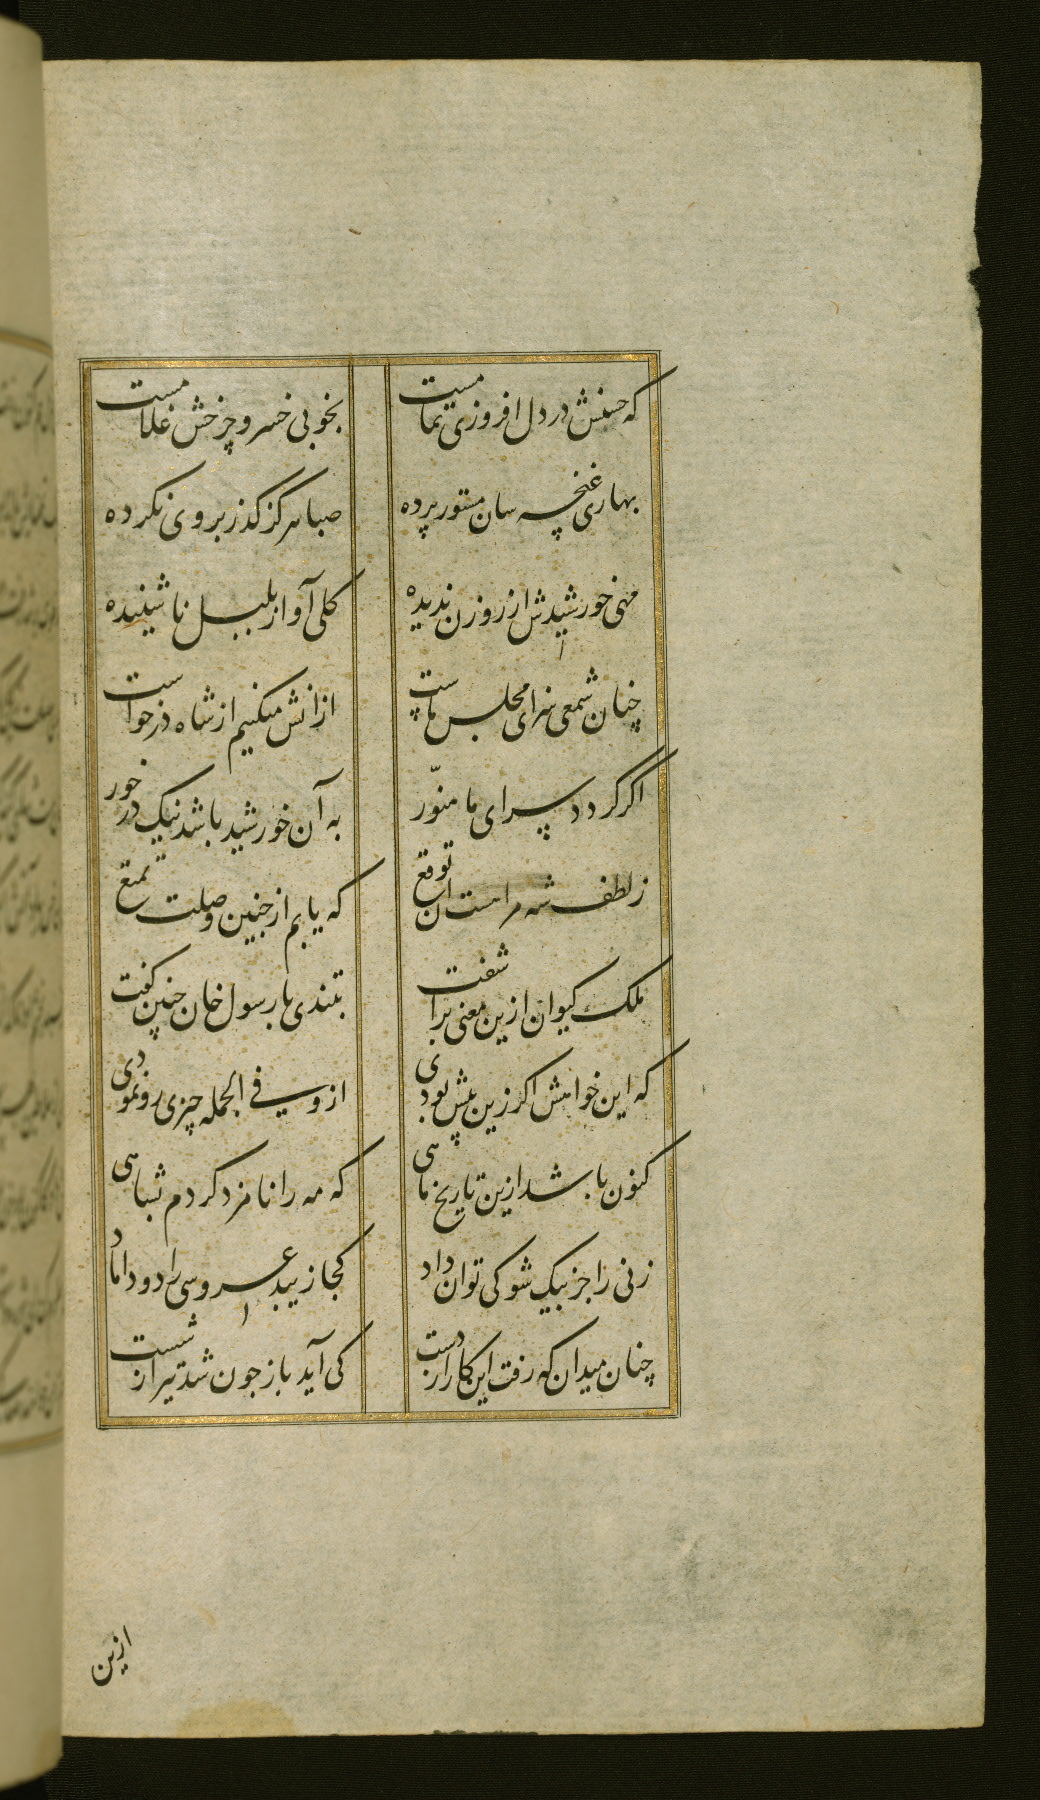 که حسنش در دل افروزی تمامست
بخوبی خسرو چرخش غلامست
بهاری غنچه سان مستور پرده
صبا هرگز گذر بر وی نکرده
مهی خورشیدش از روزن ندیده
گلی آواز بلبل ناشنیده
چنان شمعی سزای مجلس ماست
ازانش میکنیم از شاه درخواست
اگر گردد سرای ما منوّر
به آن خورشید باشد نیک درخور
ز لطف شه مراست این توقع
که یابم از چنین وصلت تمتع
ملک کیوان ازین معنی برآشفت
بتندی با رسول خان چنین گفت
که این خواهش اگر زین پیش بودی
ازو فی الجمله چیزی رو نمودی
کنون باشد ازین تاریخ ماهی
که مه را نامزد کردم بشاهی
زنی را جز بیک شو کی توان داد
کجا زیبد عروسی را دو داماد
چنان میدان که رفت این کار از دست
کی آید باز چون شد تیر از شست
ازین